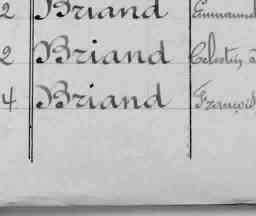 2 Briand Emmanuel
2 Briand Célestin
4 Briand François